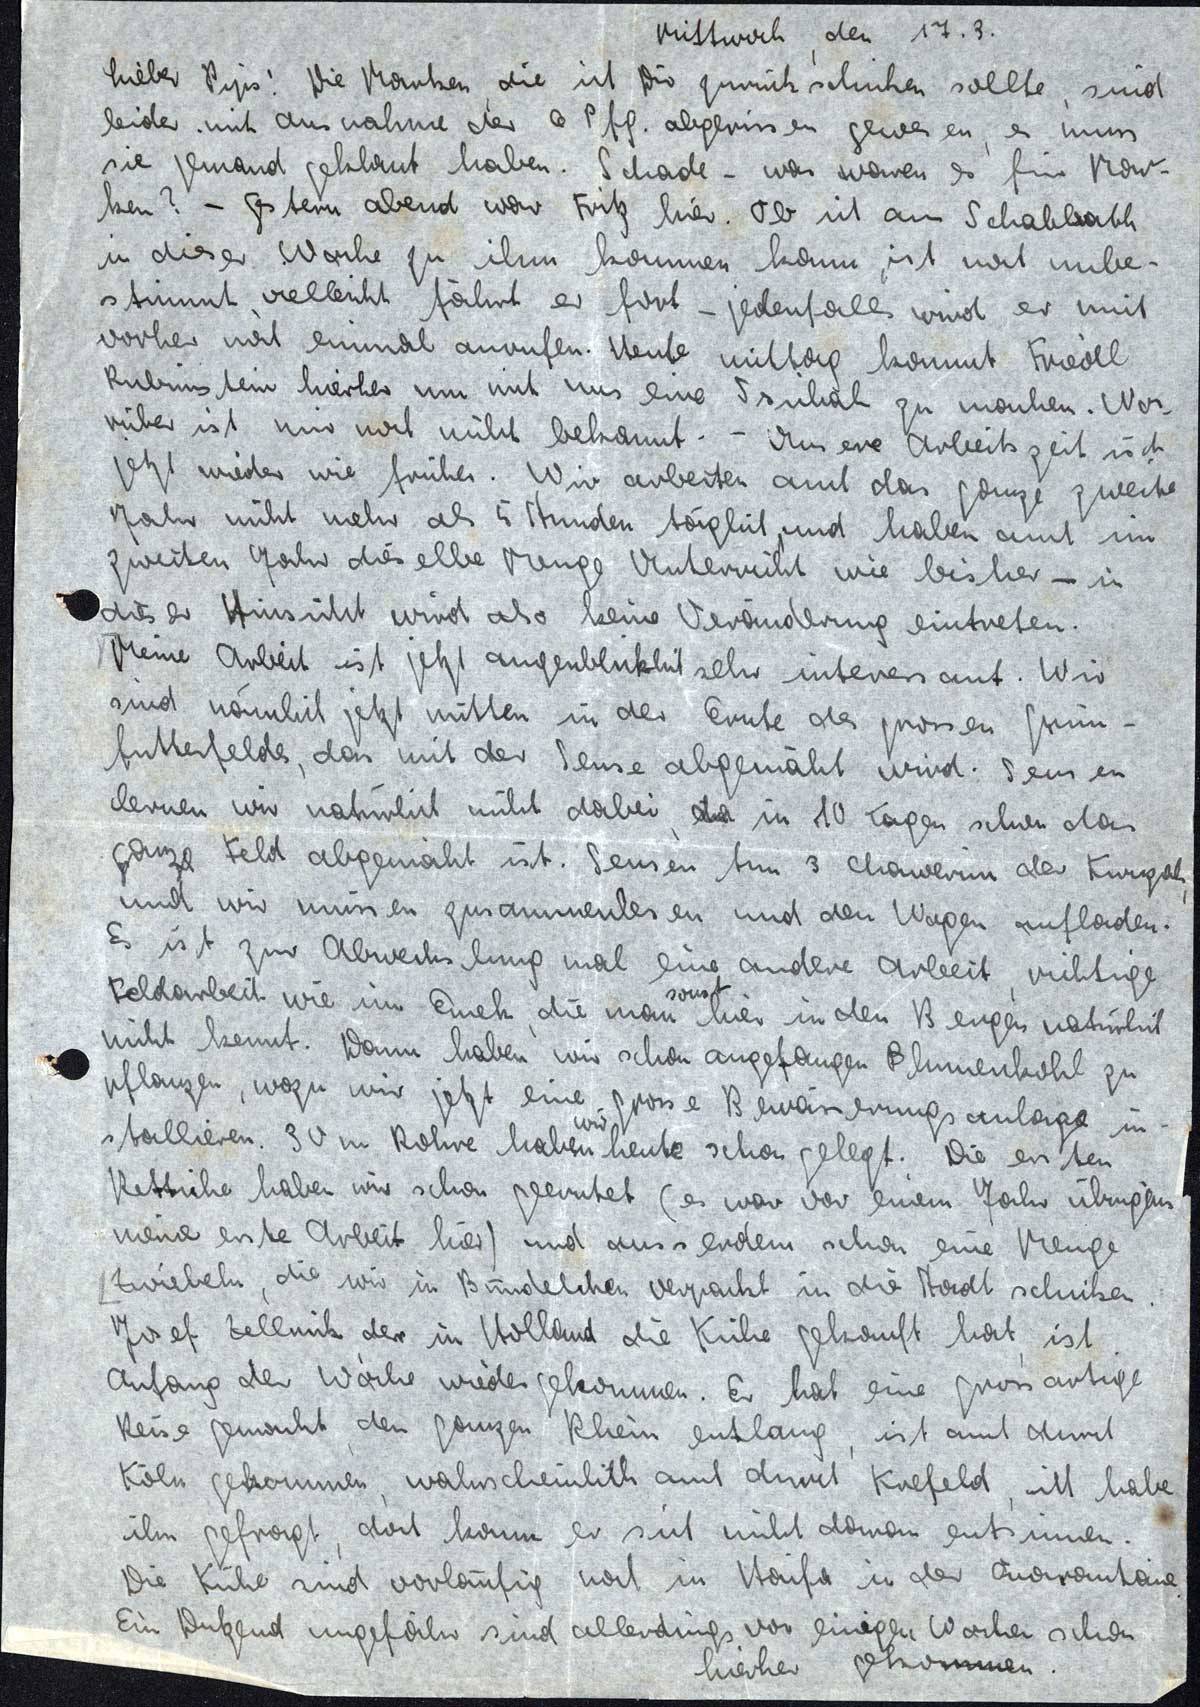 Mittwoch, den 17.3.
Lieber Pips! Die Marken, die ich Dir zurückschicken sollte, sind
leider mit Ausnahme der Pfg. abgerissen gewesen, es muss
sie jemand geklaut haben. Schade – was waren es für Mar-
ken? – Gestern abend war Fritz hier. Ob ich am Schabbath
in dieser Woche zu ihm kommen kann, ist noch unbe-
stimmt, vielleicht fährt er fort – jedenfalls wird er mich
vorher noch einmal anrufen. Heute mittag kommt Friedl
Rubinstein hierher um mit uns eine Ssichah zu machen. Wo-
rüber ist mir noch nicht bekannt. – Unsere Arbeitszeit ist
jetzt wieder wie früher. Wir arbeiten auch das ganze zweite
Jahr nicht mehr als 5 Stunden täglich und haben auch im
zweiten Jahr dieselbe Menge Unterricht wie bisher – in
dieser Hinsicht wird also keine Veränderung eintreten.
Meine Arbeit ist jetzt augenblicklich sehr interessant. Wir
sind nämlich jetzt mitten in der Ernte des grossen Grün-
futterfeldes, das mit der Sense abgemäht wird. Sensen
lernen wir natürlich nicht dabei, da in 10 Tagen schon das
ganze Feld abgemäht ist. Sensen tun 3 Chawerim der Kwuzah,
und wir müssen zusammenlesen und den Wagen aufladen.
Es ist zur Abwechslung mal eine andere Arbeit, richtige
Feldarbeit wie im Emek, die man sonst hier in den Bergen natürlich
nicht kennt. Dann haben wir schon angefangen Blumenkohl zu
pflanzen, wozu wir jetzt eine grosse Bewässerungsanlage in-
stallieren. 30 m Rohre haben wir heute schon gelegt. Die ersten
Rettiche haben wir schon geerntet (es war vor einem Jahr übrigens
meine erste Arbeit hier) und ausserdem schon eine Menge
Zwiebeln, die wir in Bündelchen verpackt in die Stadt schicken.
Josef der in Holland die Kühe gekauft hat, ist
Anfang der Woche wiedergekommen. Er hat eine grossartige
Reise gemacht, den ganzen Rhein entlang, ist auch durch
Köln gekommen, wahrscheinlich auch durch Krefeld, ich habe
ihn gefragt, doch kann er sich nicht daran entsinnen.
Die Kühe sind vorläufig noch in Haifa in der Quarantäne.
Ein Dutzend ungefähr sind allerdings vor einigen Wochen schon
hierher gekommen.